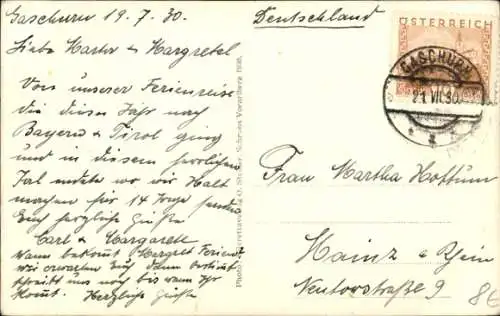 Gaschurn 19.7.30.
Liebe Martha & Margretel
Von unserer Ferienreise
die dieses Jahr nach
Bayern & Tirol ging
und in diesem herrlichen
Tal endete wo wir Halt
machen für 14 Tage senden
Euch herzliche Grüße
Carl & Margarett
Wann bekommt Margret Ferien?
wir erwarten Euch dann
schreibt uns noch bis wann Ihr
kommt. Herzliche Grüße
Deutschland
ÖSTERREICH
GASCHURN
21.VII.30
Frau Martha Hottum
Mainz a Rhein
Neutorstraße 9
8€